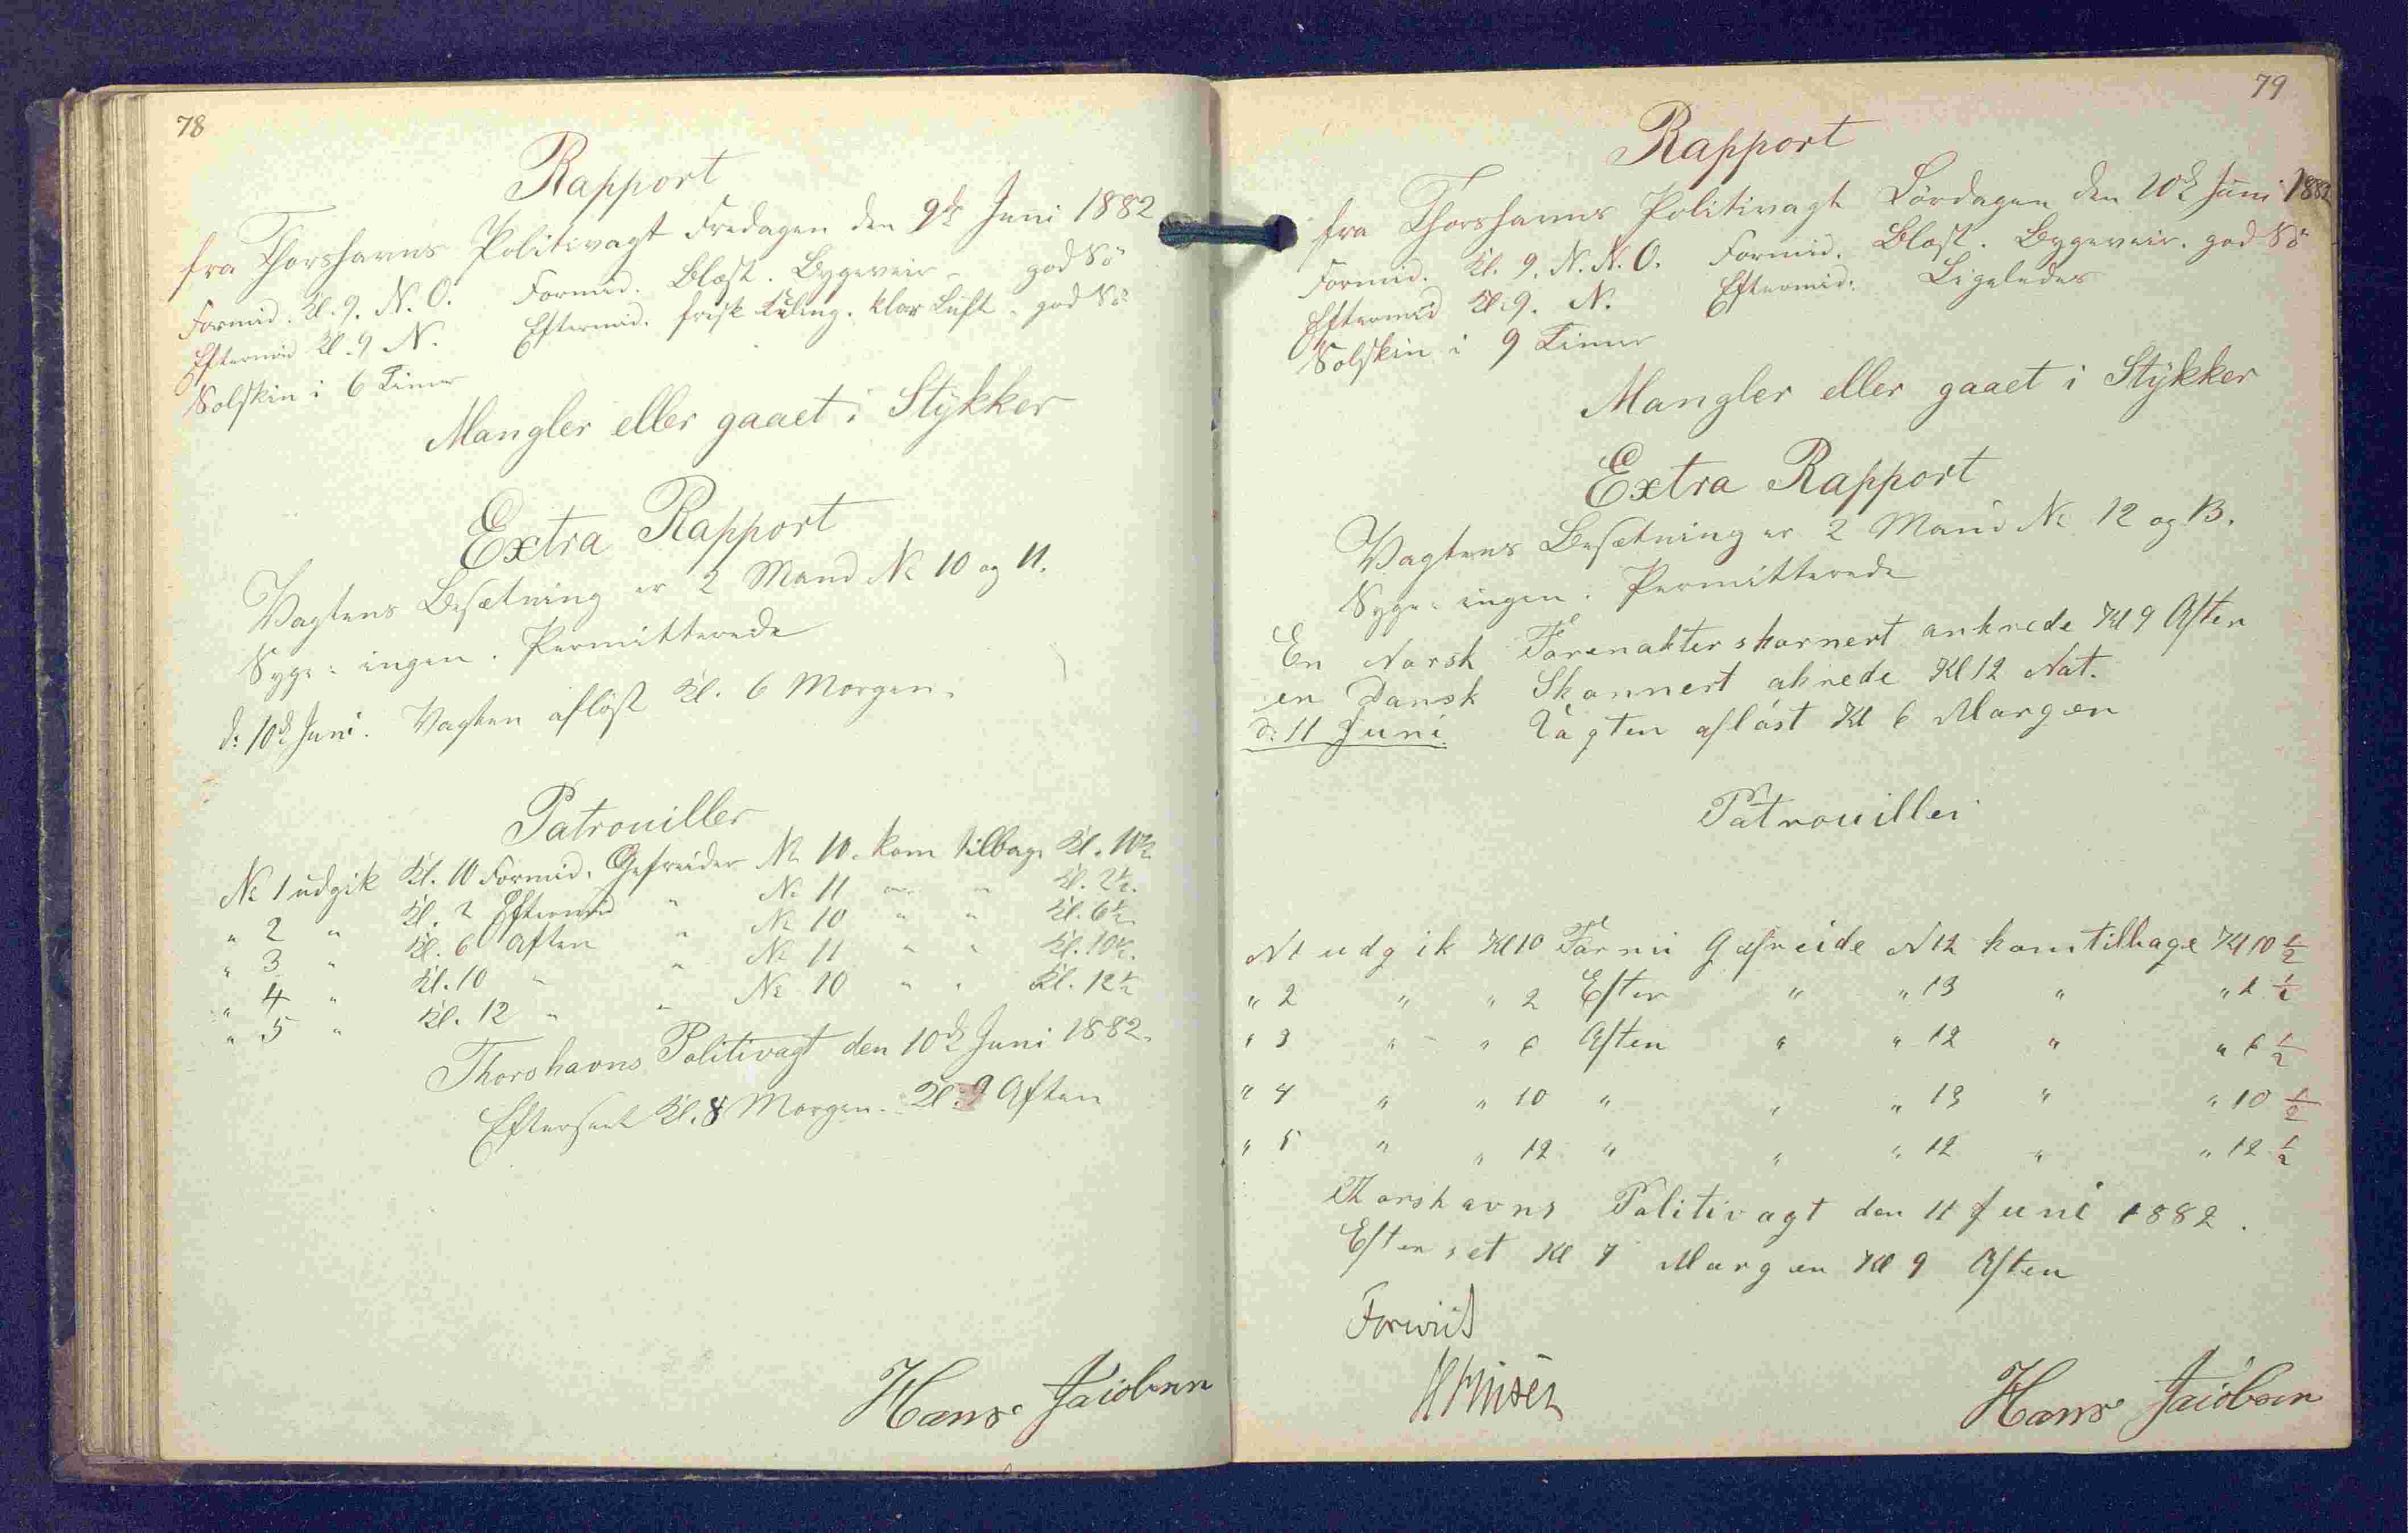 78
Rapport
fra Thorshavns Politivagt Fredagen den 9de Juni 1882
Formid. Kl. 9. N. O. Formid. Blæst. Bygeveir - god Sö
Eftermid Kl. 9 N. Eftermid. frisk Kuling. klar Luft. god Sö
Solskin i 6 Timer
Mangler eller gaaet i Stykker
Extra Rapport
Vagtens Besætning er 2 Mand No 10 og 11.
Syge: ingen. Permitterede
d: 10de Juni. Vagten aflöst Kl. 6 Morgen.
Patrouiller
No 1 udgik Kl. 10 Formid. Gefreider No 10. kom tilbage Kl. 10½
" 2 " Kl. 2 Eftermid " No 11 " " Kl. 2½.
" 3 " Kl. 6 Aften " No 10 " " Kl. 6½
" 4 " Kl. 10 " " No 11 " " Kl. 10½.
" 5 " Kl. 12 " " No 10 " " Kl. 12½
Thorshavns Politivagt den 10de Juni 1882.
Efterseet Kl. 8 Morgen. Kl. 9 Aften
Hans Jacobsen
79
Rapport
fra Thorshavns Politivagt Lördagen den 10de Juni 1882
Formid. Kl. 9. N. N. O. Formid. Blæst. Bygeveir. god Sö
Eftermid Kl. 9. N. Eftermid: Ligeledes
Solskin i 9 Timer
Mangler eller gaaet i Stykker
Extra Rapport
Vagtens Besætning er 2 Mand No 12 og 13.
Syge: ingen. Permitterede
En Norsk Forenakterskonnert ankrede Kl 9 Aften
en Dansk Skonnert akrede Kl 12 Nat.
d: 11 Juni. Vagten aflöst Kl 6 Morgen
Patrouiller
N 1 udgik Kl 10 Formi Gefreide N 12 kom tilbage Kl 10 ½
" 2 " " 2 Efter " " 13 " " 2 ½
" 3 " " 6 Aften " " 12 " " 6 ½
" 4 " " 10 " " " 13 " " 10 ½
" 5 " " 12 " " " 12 " " 12 ½
Thorshavns Politivagt den 11 Juni 1882.
Efterset Kl 7 Morgen Kl 9 Aften
Forevist
HFinsen
Hans Jacobsen